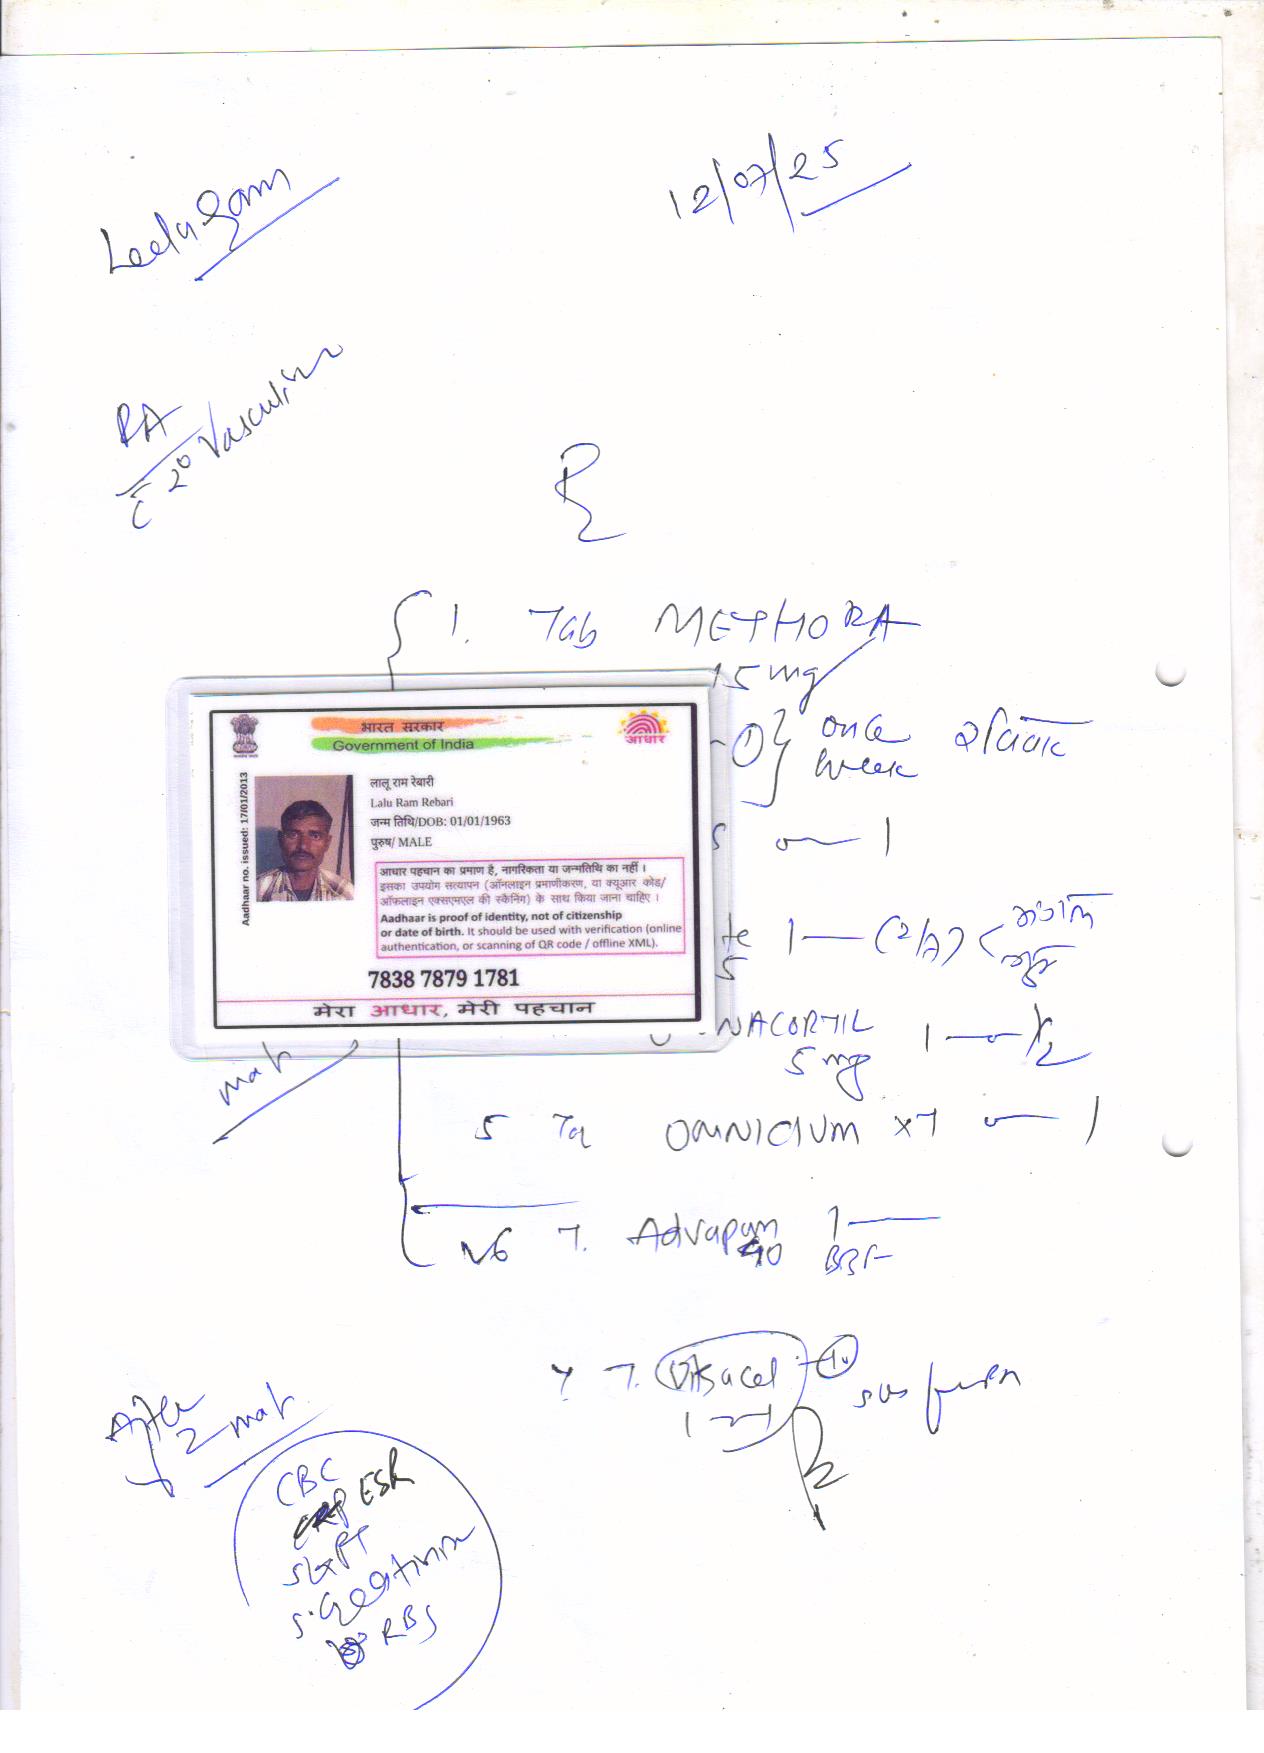 Leela Ram
12/07/25
RA
c̄ 2° Vasculitis
R
1. Tab METHORA
15 mg
1 } once रविवार
week
5 — 1
te 1 — (2/A) <
5
NACORTIL 1 —
5 mg
भारत सरकार
Government of India
आधार
Aadhaar no. issued: 17/01/2013
लालू राम रेबारी
Lalu Ram Rebari
जन्म तिथि/DOB: 01/01/1963
पुरुष/ MALE
आधार पहचान का प्रमाण है, नागरिकता या जन्मतिथि का नहीं ।
इसका उपयोग सत्यापन (ऑनलाइन प्रमाणीकरण, या क्यूआर कोड/
ऑफलाइन एक्सएमएल की स्कैनिंग) के साथ किया जाना चाहिए ।
Aadhaar is proof of identity, not of citizenship
or date of birth. It should be used with verification (online
authentication, or scanning of QR code / offline XML).
7838 7879 1781
मेरा आधार, मेरी पहचान
5 OMNICIUM XT — 1
6 T. Advapan 1 —
40 BBF
T. 10
1 — 1
After
2
CBC
CRP ESR
SGPT
S. Creatinin
RBS